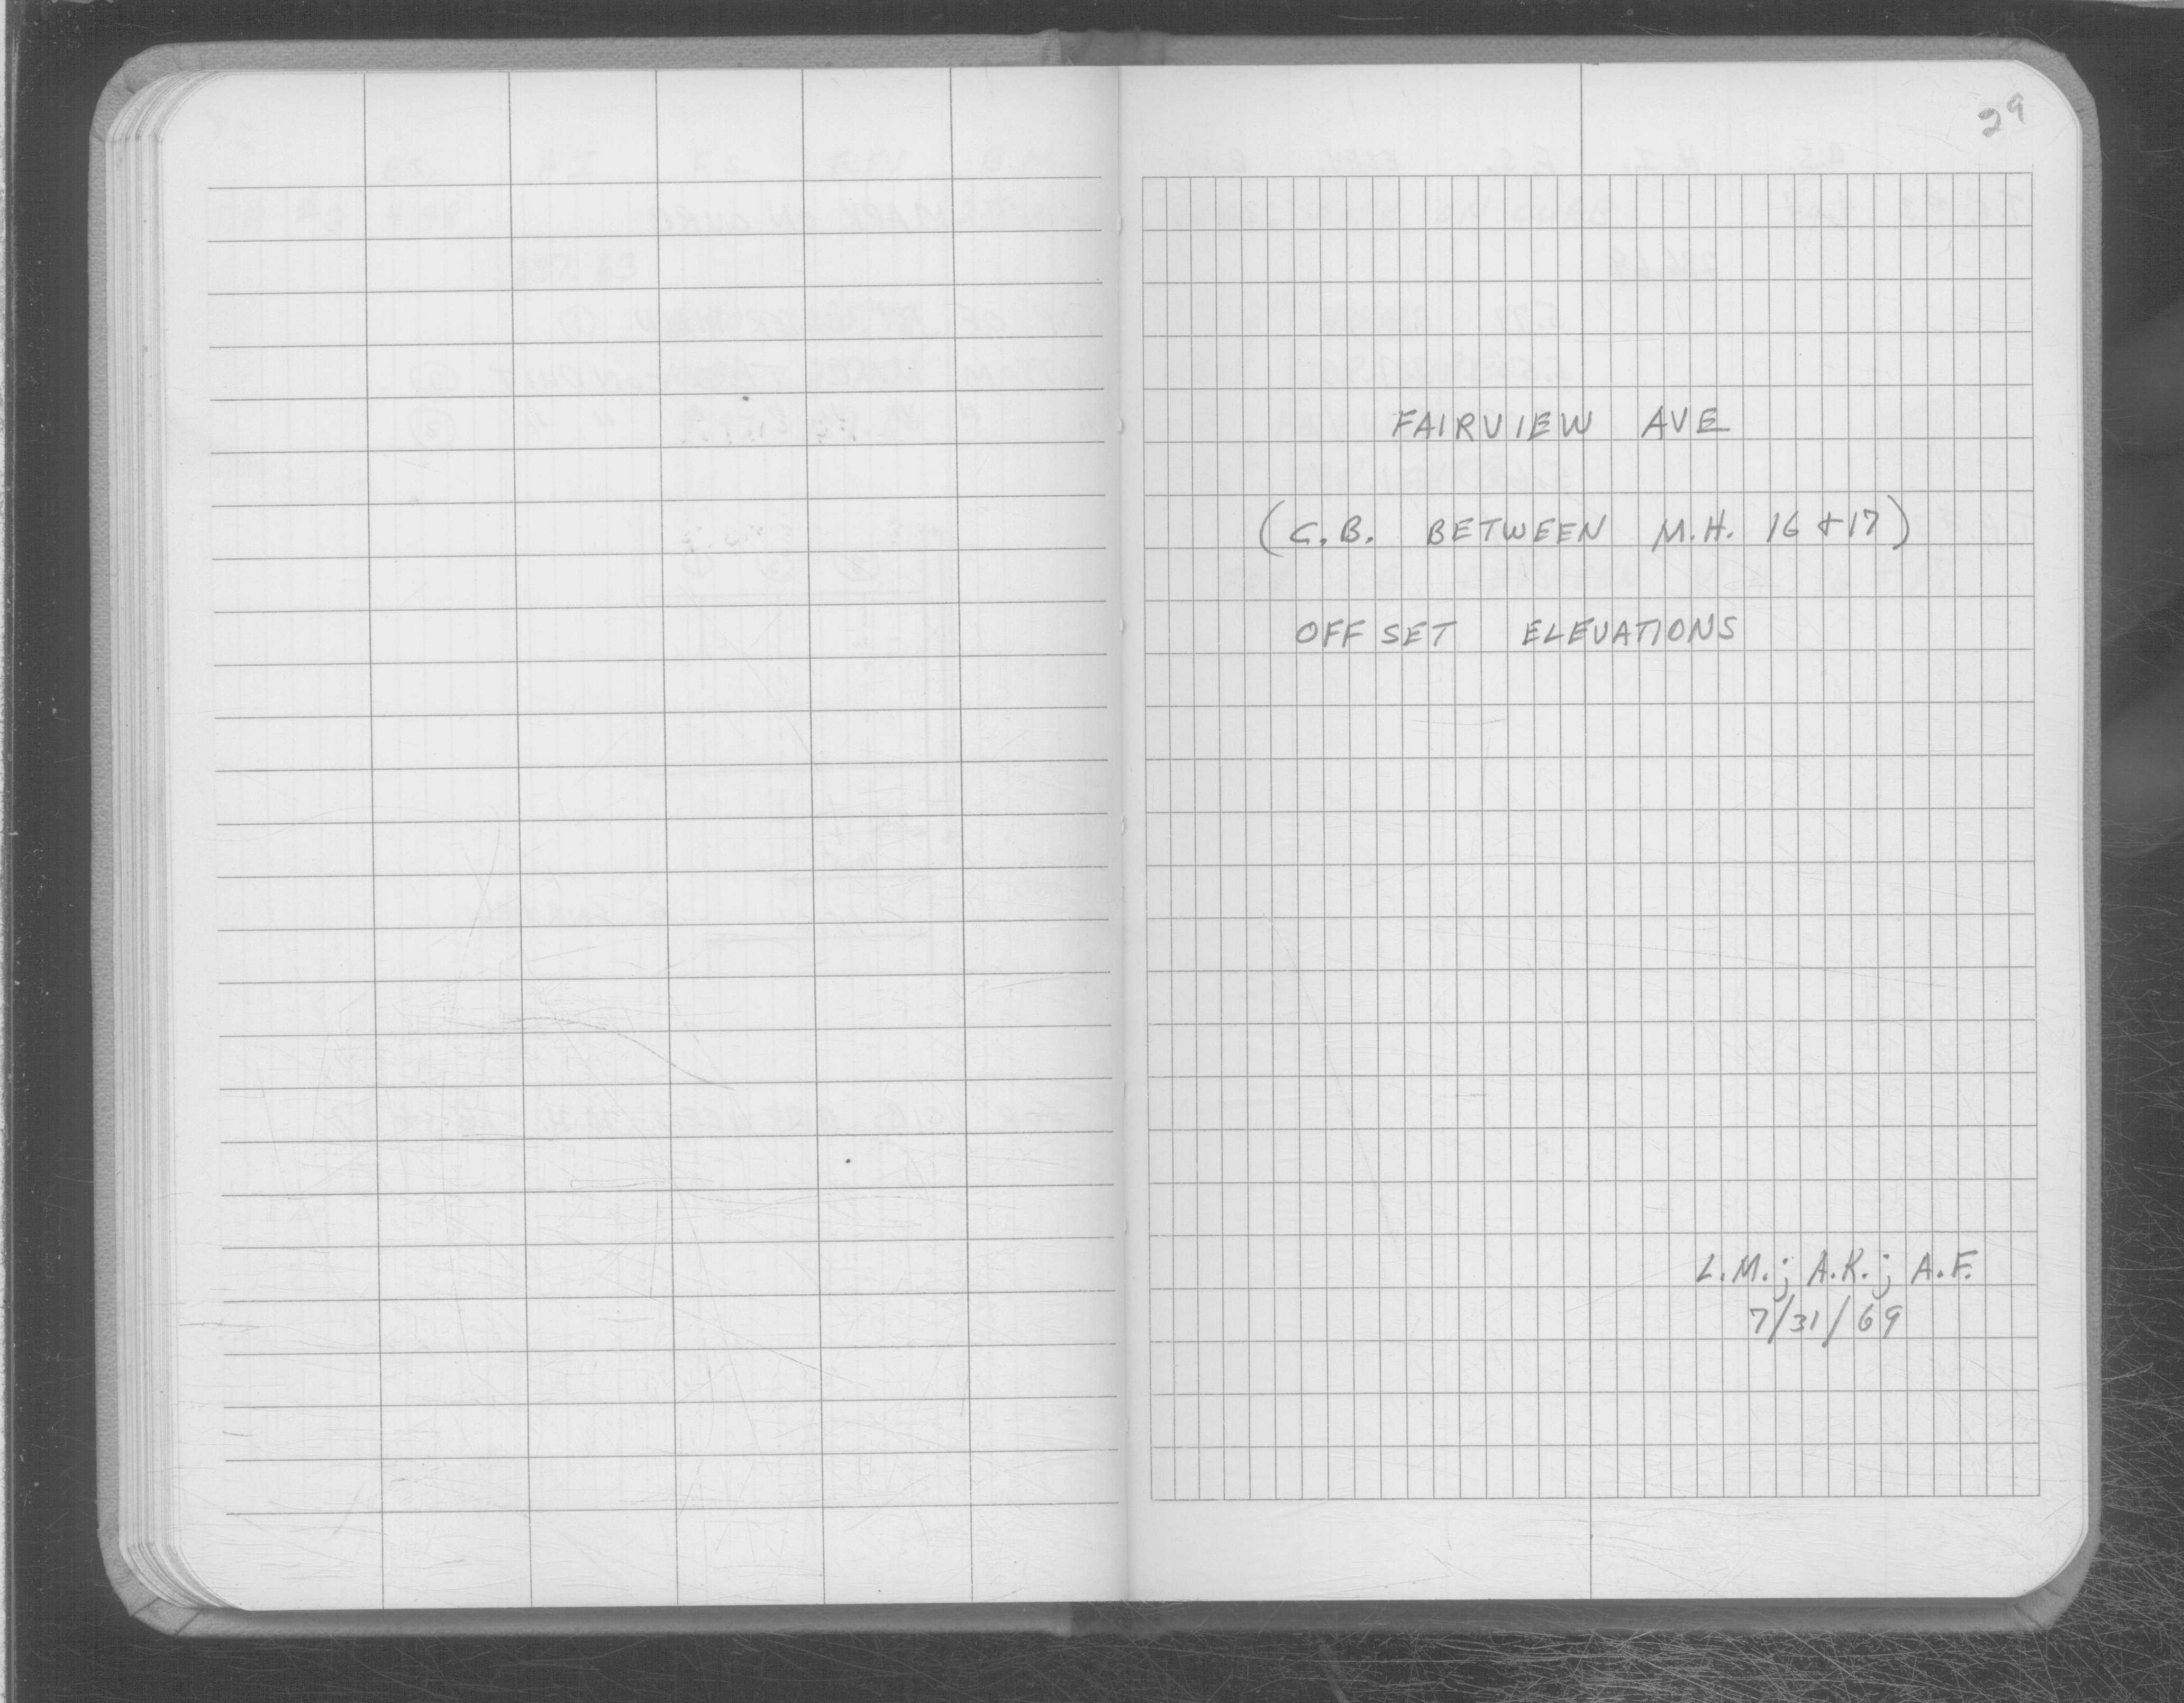 29
FAIRVIEW AVE
(C.B. BETWEEN M.H. 16 & 17)
OFFSET ELEVATIONS
L.M.; A.R.; A.F.
7/31/69